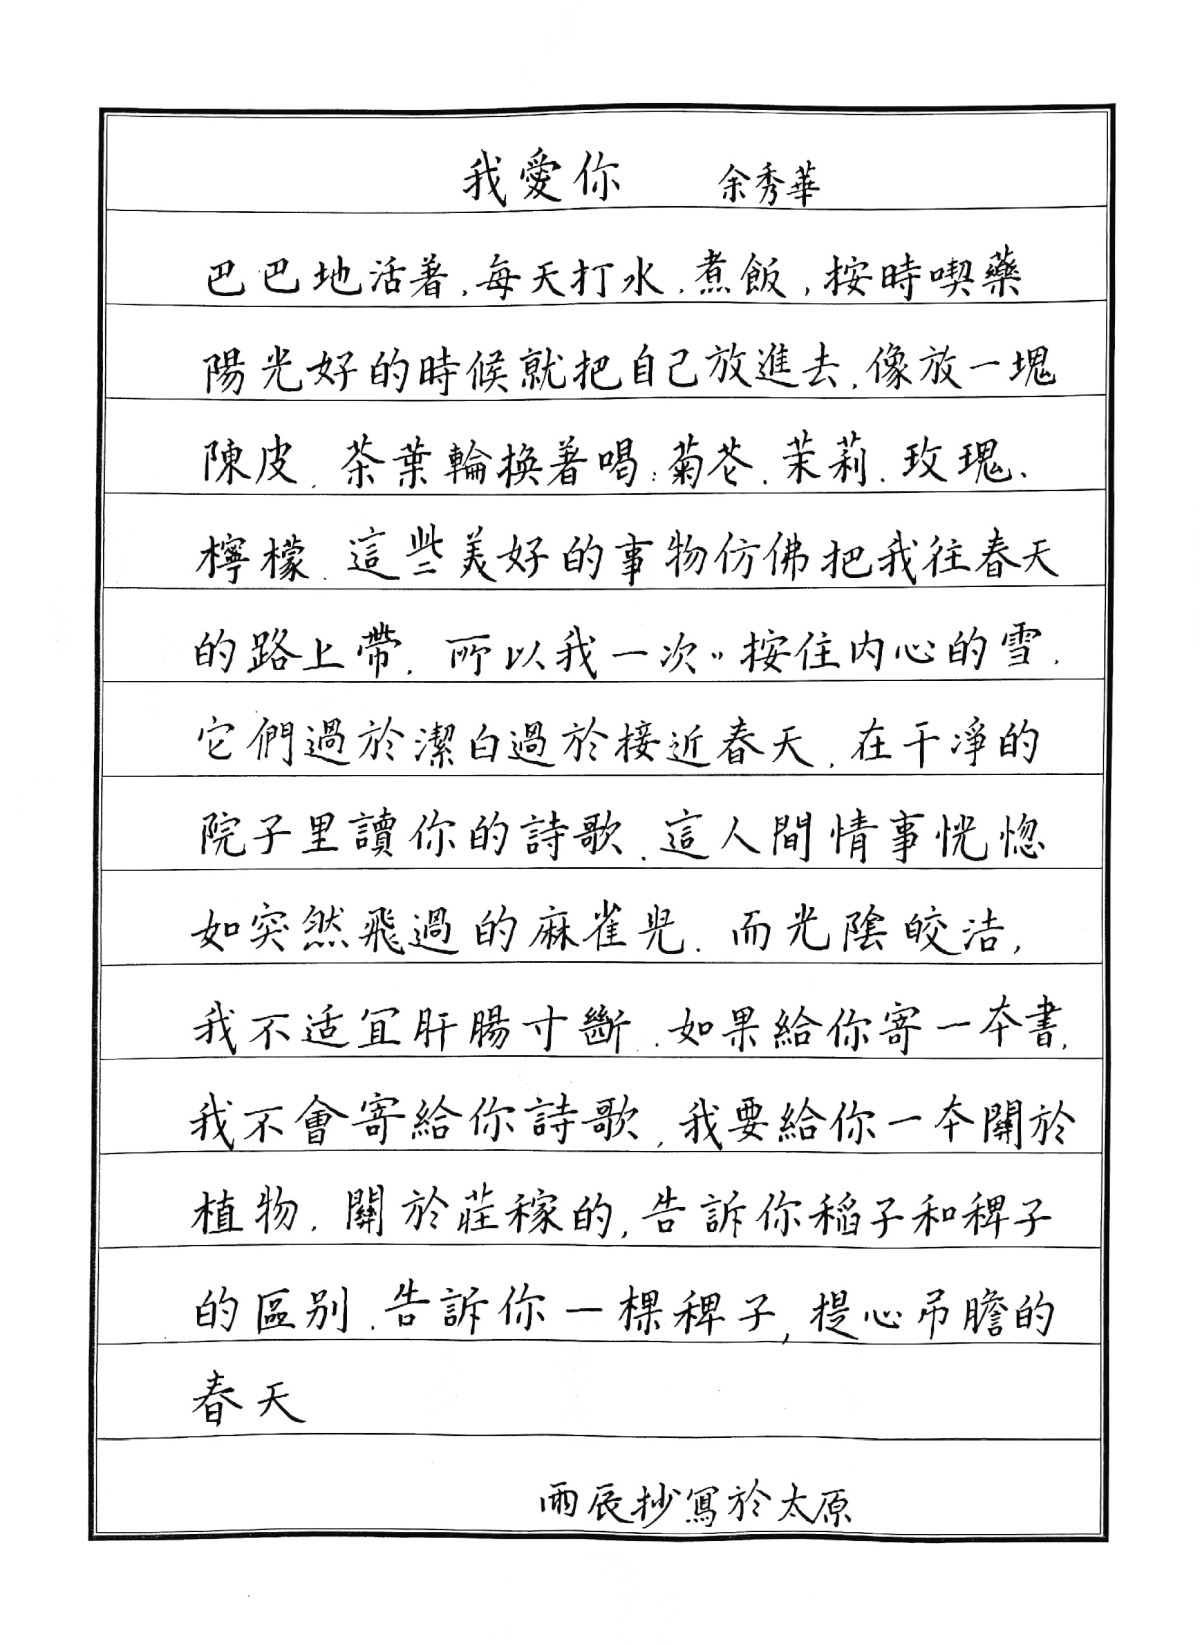 我愛你 余秀華
巴巴地活著,每天打水,煮飯,按時喫藥
陽光好的時候就把自己放進去,像放一塊
陳皮,茶葉輪換著喝:菊芲,茉莉,玫瑰、
檸檬,這些美好的事物仿佛把我往春天
的路上帶,所以我一次〃按住内心的雪,
它們過於潔白過於接近春天,在干凈的
院子里讀你的詩歌,這人間情事恍惚
如突然飛過的麻雀兒,而光陰皎洁,
我不适宜肝腸寸斷,如果給你寄一本書,
我不會寄給你詩歌,我要給你一本關於
植物,關於莊稼的,告訴你稻子和稗子
的區别,告訴你一棵稗子,提心吊膽的
春天
雨辰抄寫於太原